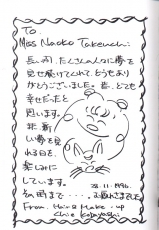 To.
Miss Naoko Takeuchi:
長い間、たくさんの人に夢を
見せ続けてくれて、どうもあり
がとうございました。皆、とても
幸せだったと
思います。
又、新し
い夢を見
れる日を、
楽しみに
しています。
28.11.1996.
From. Hair & Make-up
Chie Kobayashi